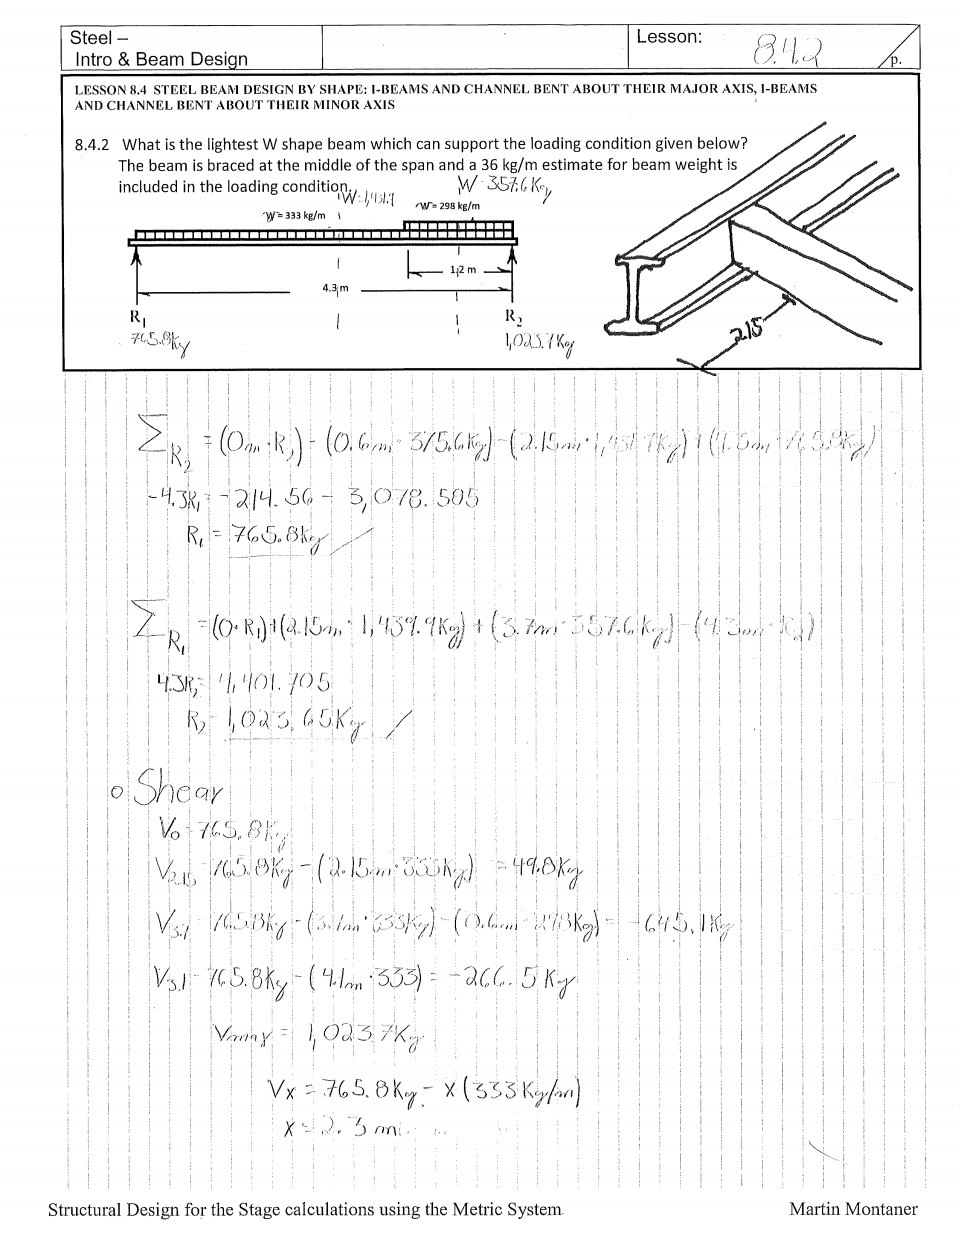 Steel –
Intro & Beam Design
Lesson:
8.4.2
p.
LESSON 8.4 STEEL BEAM DESIGN BY SHAPE: I-BEAMS AND CHANNEL BENT ABOUT THEIR MAJOR AXIS, I-BEAMS
AND CHANNEL BENT ABOUT THEIR MINOR AXIS
8.4.2 What is the lightest W shape beam which can support the loading condition given below?
The beam is braced at the middle of the span and a 36 kg/m estimate for beam weight is
included in the loading condition.
W=357.6Kg
W= 333 kg/m
W= 298 kg/m
1.2 m
4.3 m
R1
R2
765.8Kg
1,023.7Kg
2.15
ΣR2 = (0m·R2) - (0.6m·375.6Kg) - (2.15m·1,431.9Kg) + (4.3m·765.8Kg)
-4.3R1 = -214.56 - 3,078.585
R1 = 765.8Kg
ΣR1 = (0·R1)+(2.15m·1,439.9Kg)+(3.7m·357.6Kg)-(4.3m·R2)
4.3R2= 4,401.705
R2 1,023.65Kg
o Shear
V0 = 765.8Kg
V2.15 765.8Kg - (2.15m·333Kg) = 49.8Kg
V3.7 765.8Kg - (3.7m·333Kg) - (0.6m·298Kg) = -645.1Kg
V3.1 765.8Kg - (4.1m·333) = -266.5Kg
Vmax = 1,023.7Kg
Vx = 765.8Kg - x(333Kg/m)
x = 2.3m
Structural Design for the Stage calculations using the Metric System.
Martin Montaner